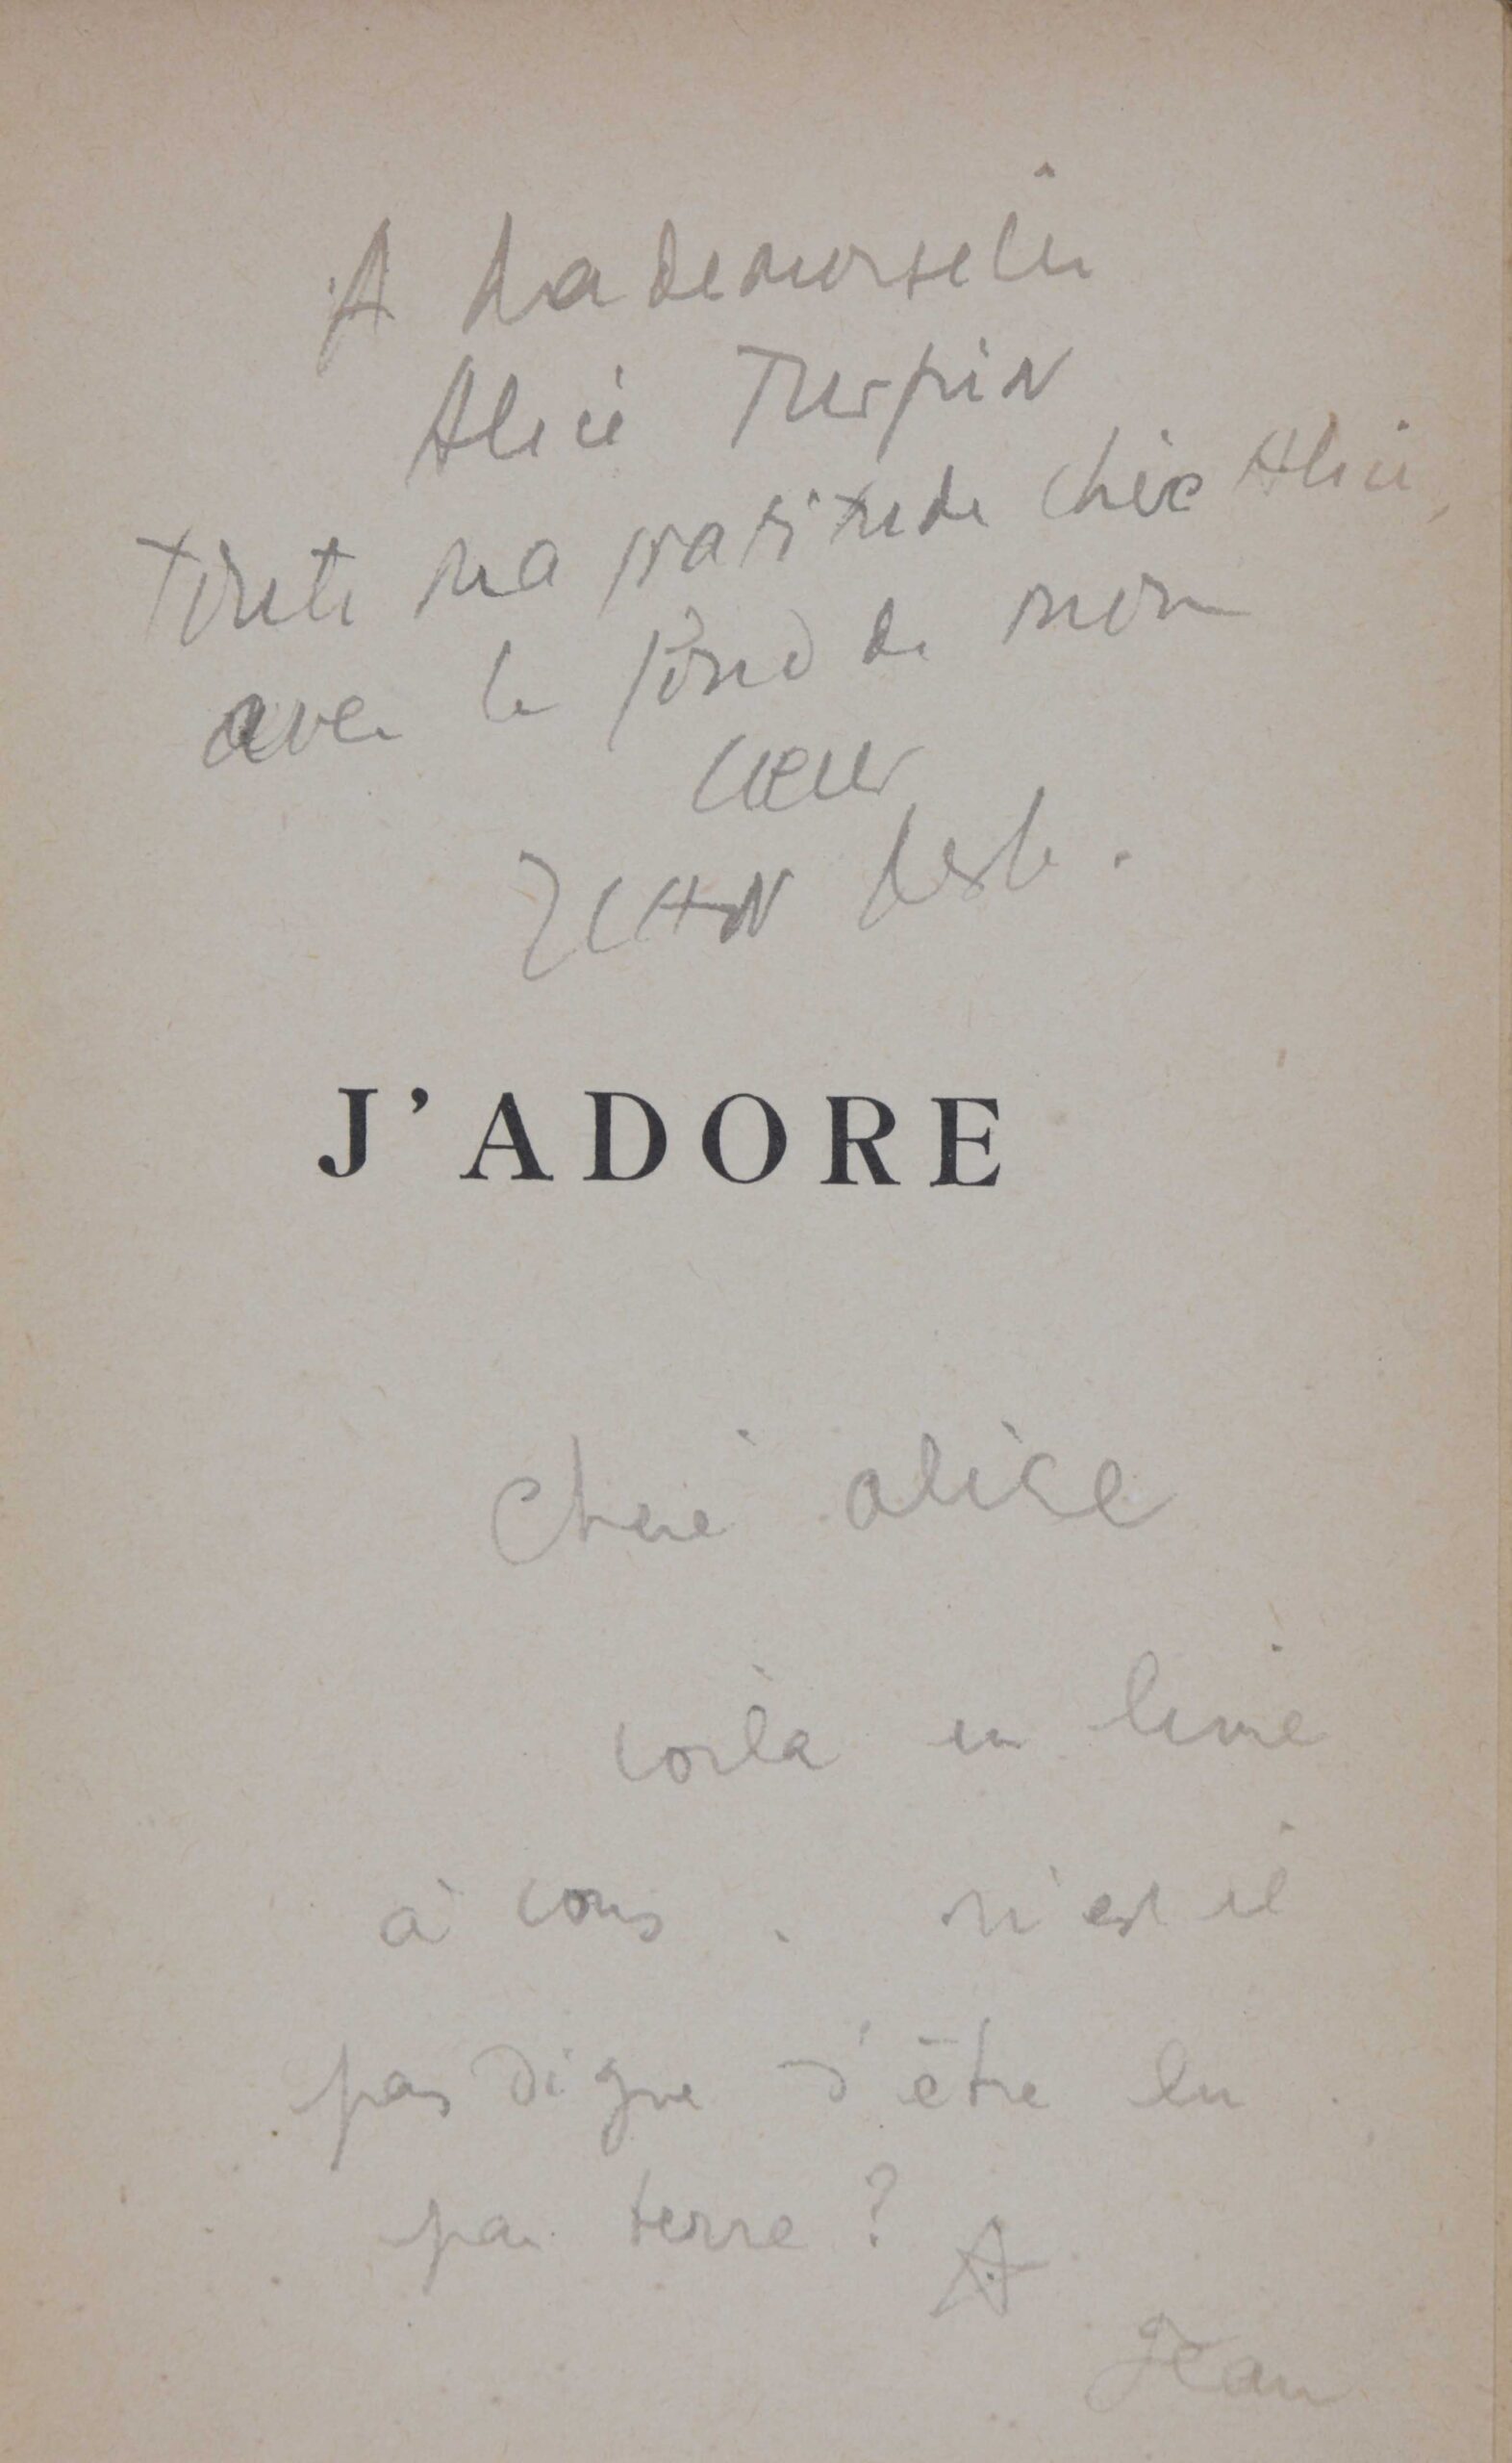 A Mademoiselle
Alice Turpin
Toute ma gratitude chère Alice,
avec le fond de mon
cœur
JEAN Desb.
J'ADORE
Chère alice
voilà un livre
à vous. n'est il
pas digne d'être lu
par terre ?
Jean